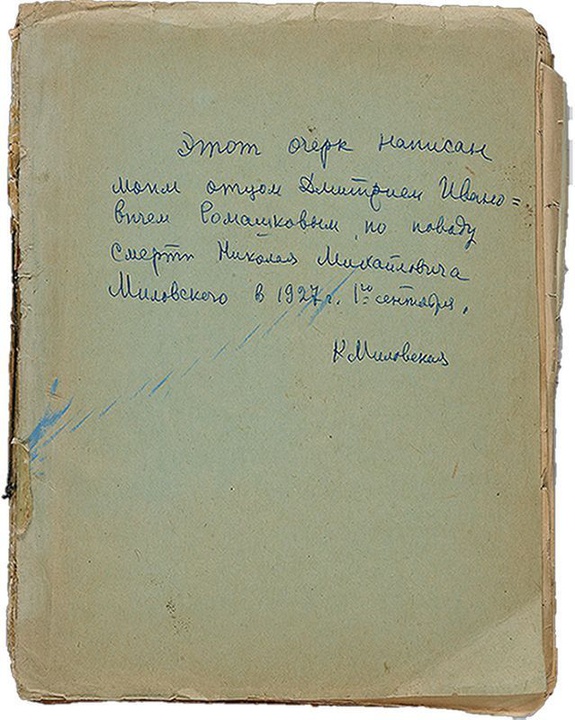 Этот очерк написан
моим отцом Дмитрием Ивано=
вичем Ромашковым, по поводу
смерти Николая Михайловича
Миловского в 1927 г. 1го сентября.
К Миловская